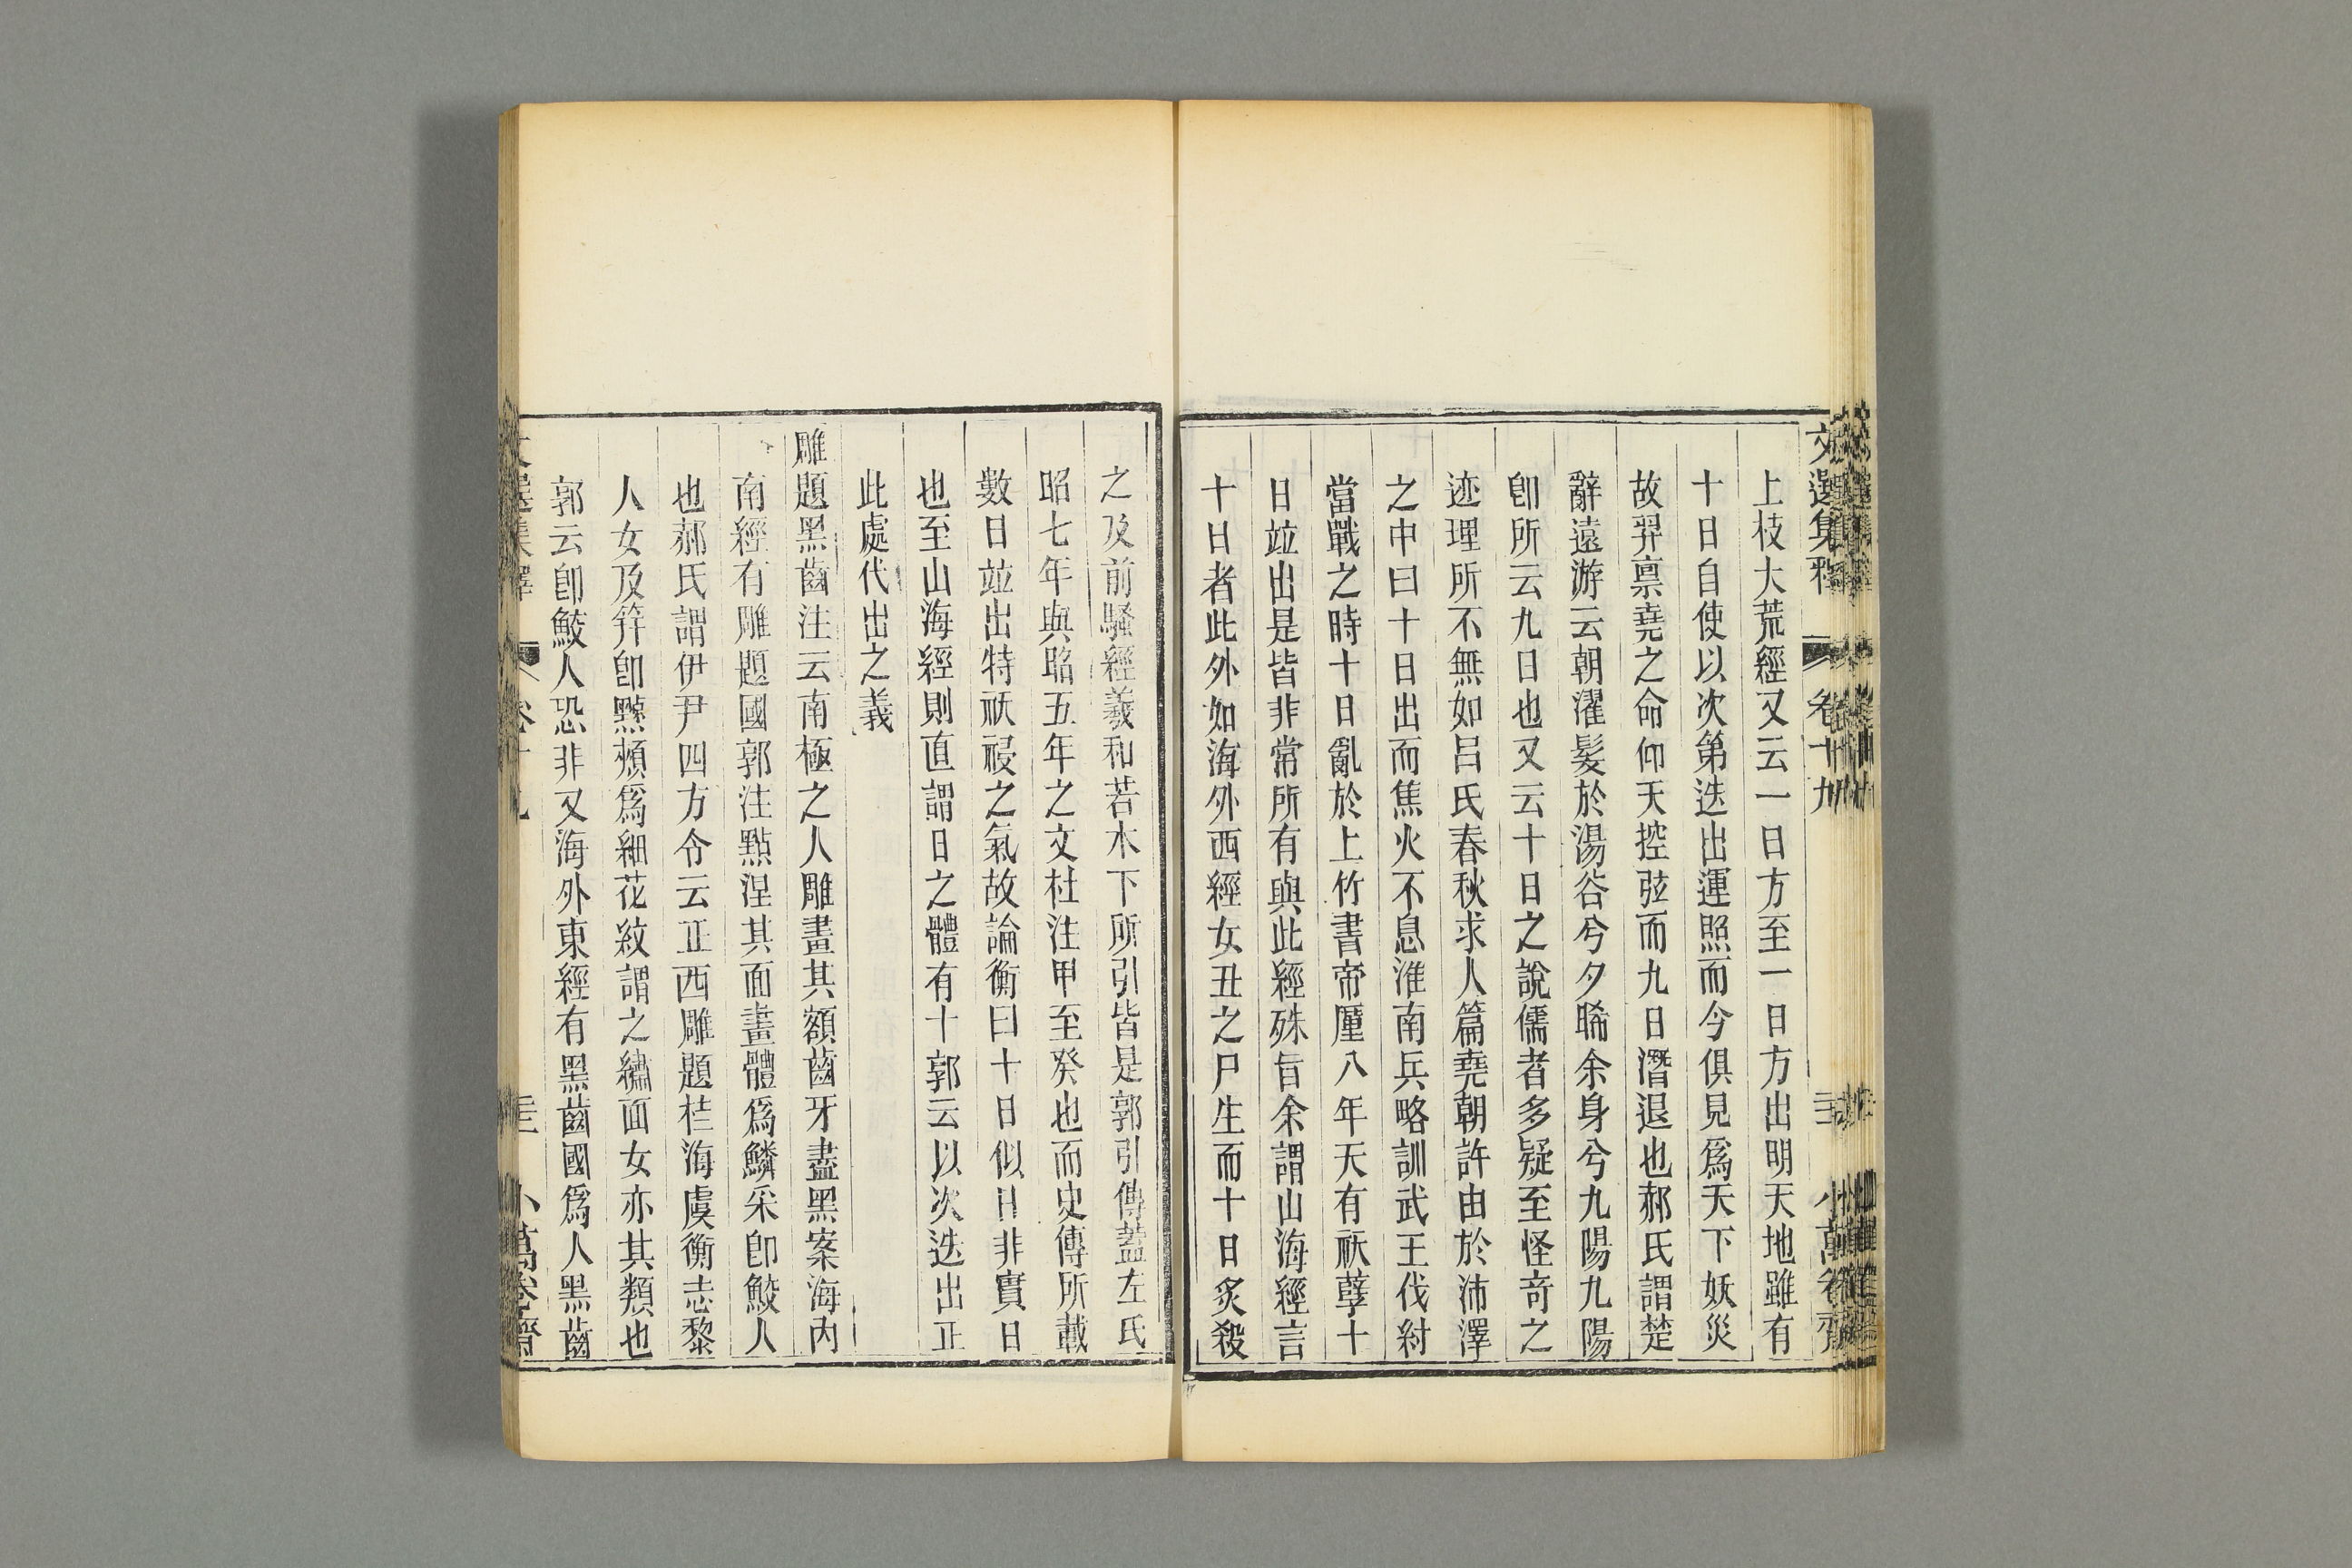 上枝大荒經又云一日方至一日方出明天地雖有
十日自使以次第迭出運照而今俱見爲天下妖災
故羿禀堯之命仰天控弦而九日潛退也郝氏謂楚
辭遠游云朝濯髮於湯谷兮夕晞余身兮九陽九陽
卽所云九日也又云十日之說儒者多疑至怪竒之
迹理所不無如呂氏春秋求人篇堯朝許由於沛澤
之中曰十日出而焦火不息淮南兵略訓武王伐紂
當戰之時十日亂於上竹書帝廑八年天有祅孽十
日竝出是皆非常所有與此經殊旨余謂山海經言
十日者此外如海外西經女丑之尸生而十日炙殺
之及前騷經羲和若木下所引皆是郭引傳蓋左氏
昭七年與昭五年之文杜注甲至癸也而史傳所載
數日竝出特祅祲之氣故論衡曰十日似日非實日
也至山海經則直謂日之體有十郭云以次迭出正
此處代出之義
雕題黑齒注云南極之人雕畫其額齒牙盡黑案海內
南經有雕題國郭注點涅其面畫體爲鱗采卽鮫人
也郝氏謂伊尹四方令云正西雕題桂海虞衡志黎
人女及笄卽黥頰爲細花紋謂之繡面女亦其類也
郭云卽鮫人恐非又海外東經有黑齒國爲人黑齒
文選集釋
卷十九
小萬卷齋